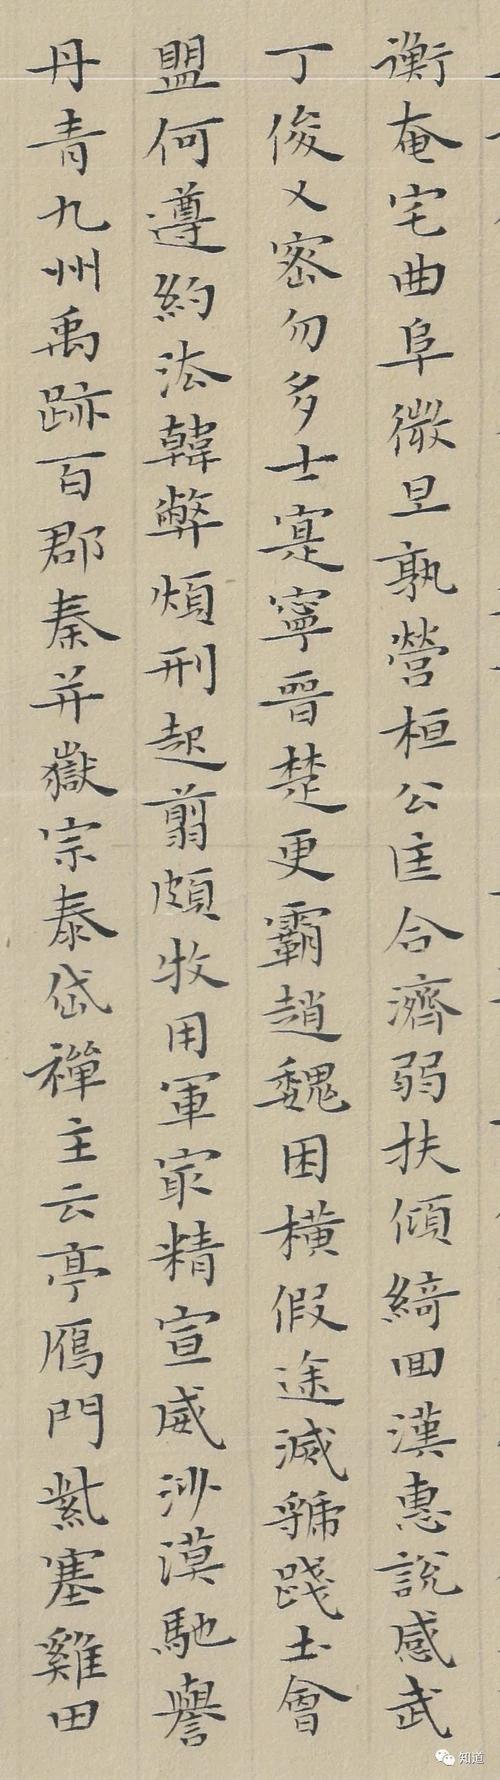 衡奄宅曲阜微旦孰營桓公匡合濟弱扶傾綺回漢惠說感武
丁俊乂密勿多士寔寧晉楚更霸趙魏困橫假途滅虢踐土會
盟何遵約法韓弊煩刑起翦頗牧用軍最精宣威沙漠馳譽
丹青九州禹跡百郡秦并嶽宗泰岱禪主云亭雁門紫塞雞田
知道